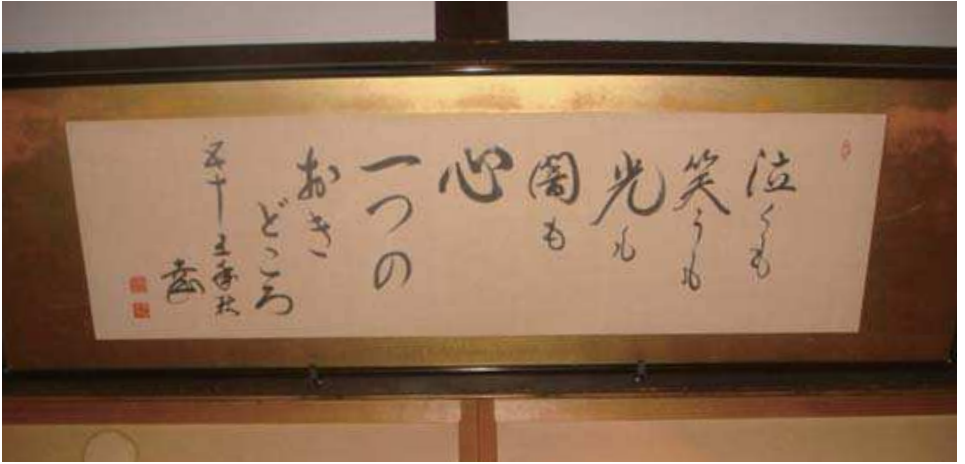 泣くも
笑うも
光も
闇も
心
一つの
おき
どころ
五十五年秋